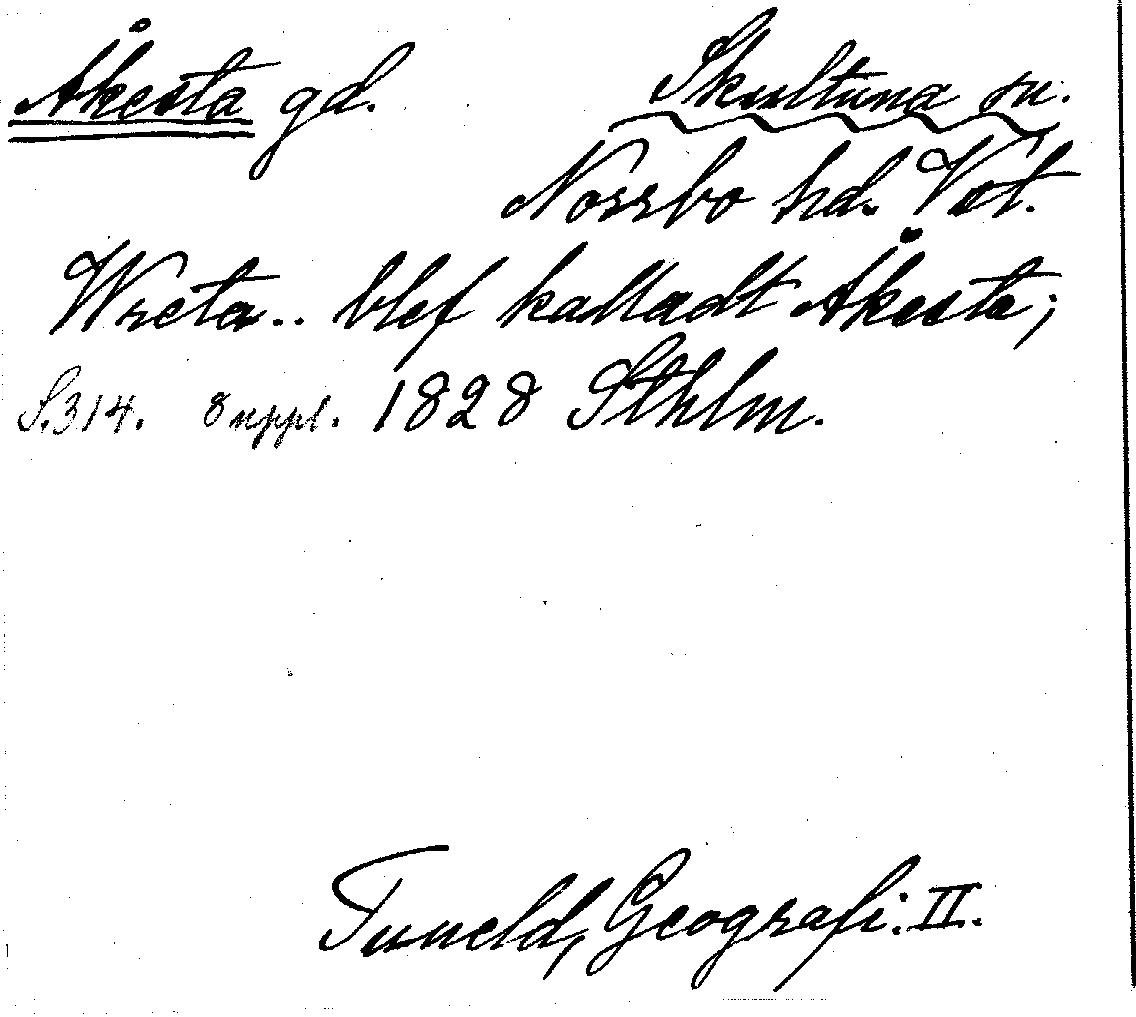 Åkesta gd. Skultuna sn.
Norrbo hd. Vstl.
Wreta.. blef kalladt Åkesta;
S.314. 8 uppl. 1828 Sthlm.
Tuneld, Geografi. II.